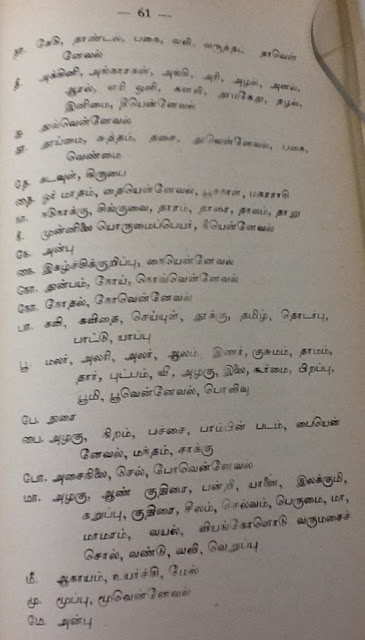 — 61 —
தா. கேடு, தாண்டல், பகை, வலி, வருத்தம், தாவென்
னேவல்
தீ. அக்கினி, அங்காரகன், அங்கி, அரி, அழல், அனல்,
ஆரல், எரி ஒளி, கனலி, தூமகேது, தழல்,
இனிமை, தீயென்னேவல்
து துவ்வென்னேவல்
தூ தூய்மை, சுத்தம், தசை, தூவென்னேவல், பகை,
வெண்மை
தே. கடவுள், கிருபை
தை. ஓர் மாதம், தையென்னேவல், பூசநாள், மகரராசி
நா. நாக்கு,
நீ. முன்னிலை யொருமைப்பெயர், நீயென்னேவல்
நே. அன்பு
நை. இகழ்ச்சிக்குறிப்பு, நையென்னேவல்
நொ. துன்பம், நோய், நொவ்வென்னேவல்
நோ. நோதல், நோவென்னேவல்
பா. கவி, கவிதை, செய்யுள், தூக்கு, தமிழ், தொடர்பு,
பாட்டு, யாப்பு
பூ. மலர், அலரி, அலர், ஆலம், இணர், குசுமம், தாமம்,
தார், புட்பம், வீ, அழகு, இலை, கூர்மை, பிறப்பு,
பூமி, பூவென்னேவல், பொலிவு
பே. நுரை
பை. அழகு, நிறம், பச்சை, பாம்பின் படம், பையென்
னேவல், மந்தம், சாக்கு
போ. அசைநிலை, செல், போவென்னேவல்
மா. அழகு, ஆண் குதிரை, பன்றி, யானை, இலக்குமி,
கறுப்பு, குதிரை, நிலம், செல்வம், பெருமை, மா,
மாமரம், வயல், வியங்கோளொடு வருமசைச்
சொல், வண்டு, வலி, வெறுப்பு
மீ. ஆகாயம், உயர்ச்சி, மேல்
மூ. மூப்பு, மூவென்னேவல்
மே. அன்பு